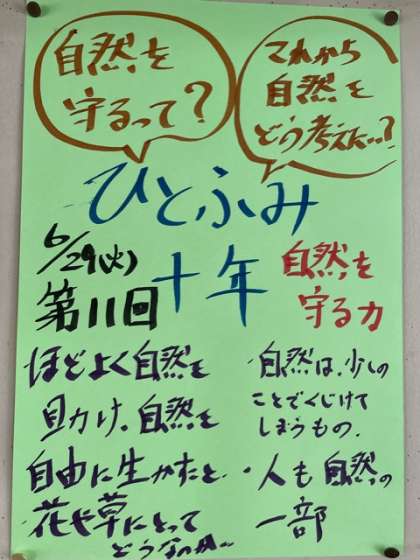 自然を
守るって?
これから
自然を
どう考えた…?
ひとふみ
十年
6/29(火)
第11回
自然を
守る力
ほどよく自然を
助け、自然を
自由に生かすと
花や草にとって
どうなのか…
・自然は、少しの
ことでくじけて
しまうもの.
・人も自然の
一部